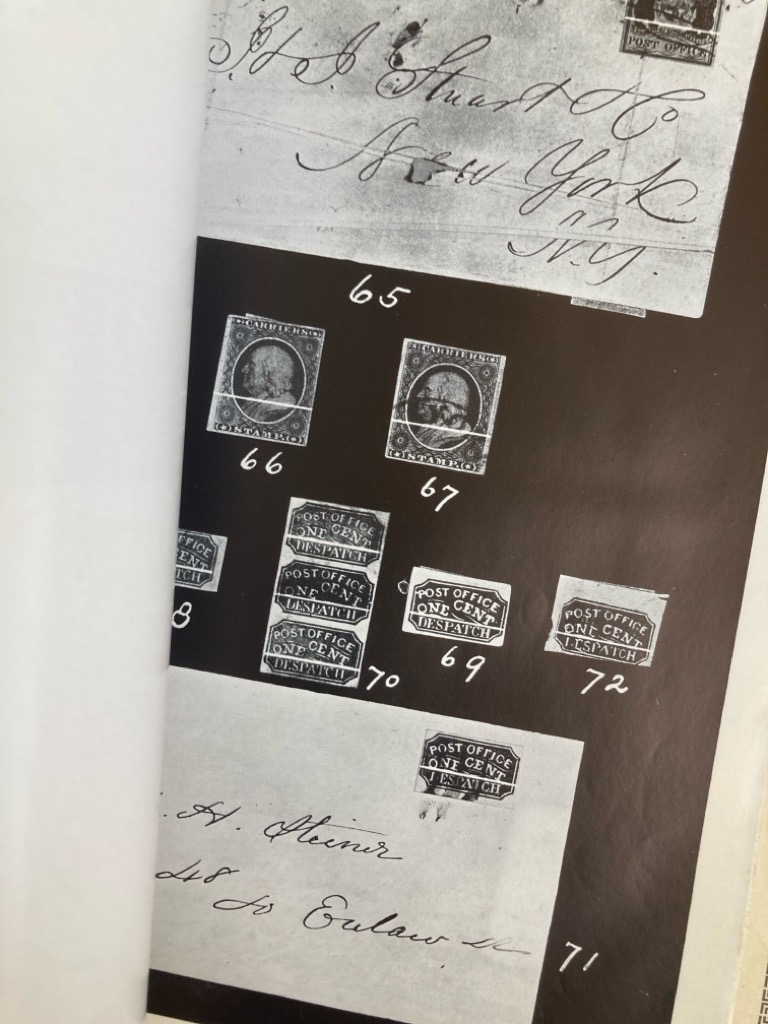 POST OFFICE
R. & A. Stuart & Co
New York
N.Y.
65
CARRIERS
STAMP.
66
CARRIERS
STAMP.
67
FFICE
ENT
TCH
8
POST OFFICE
ONE CENT
DESPATCH
POST OFFICE
ONE CENT
DESPATCH
POST OFFICE
ONE CENT
DESPATCH
70
POST OFFICE
ONE CENT
DESPATCH
69
POST OFFICE
ONE CENT
DESPATCH
72
POST OFFICE
ONE CENT
DESPATCH
H. Steiner
48 So Eutaw St
71